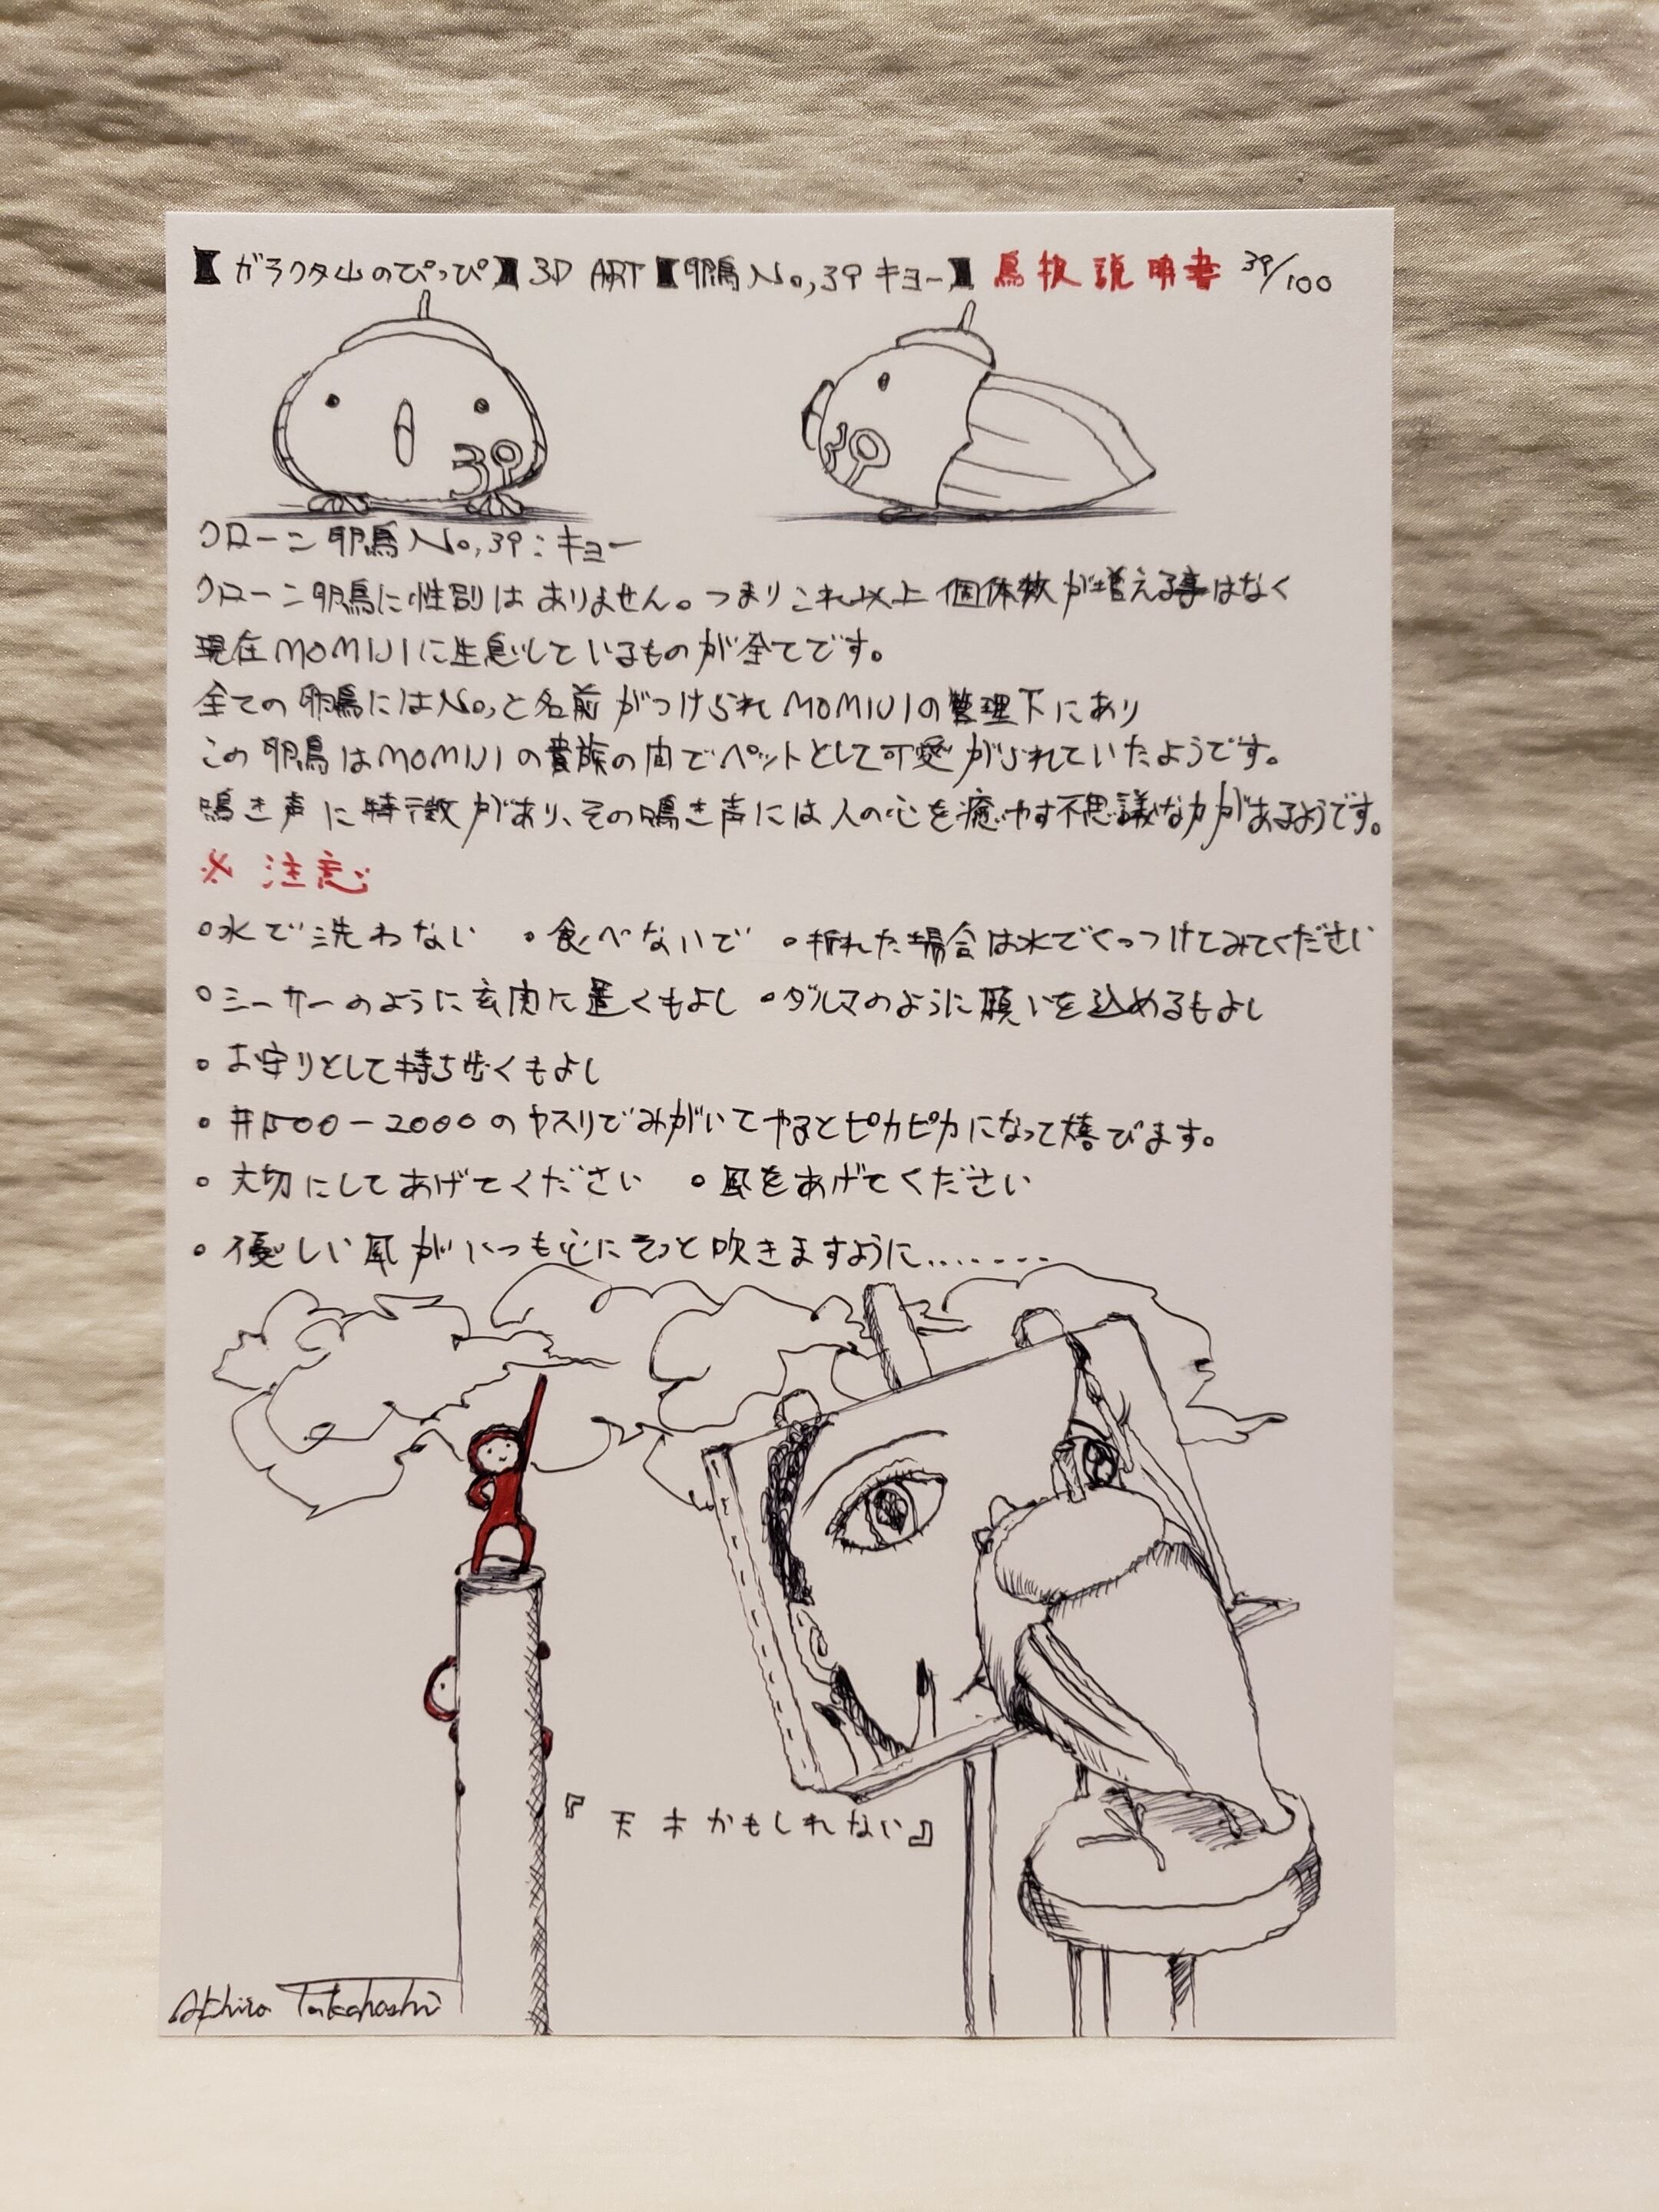 【ガラクタ山のぴっぴ】3D ART【卵鳥No,39 キョー】鳥扱説明書 39/100
39
39
クローン卵鳥No,39:キョー
クローン卵鳥に性別はありません。つまりこれ以上個体数が増える事はなく
現在MOMIJIに生息しているものが全てです。
全ての卵鳥にはNo,と名前がつけられMOMIJIの管理下にあり
この卵鳥はMOMIJIの貴族の間でペットとして可愛がられていたようです。
鳴き声に特徴があり、その鳴き声には人の心を癒やす不思議な力があるようです。
※ 注意
・水で洗わない ・食べないで ・折れた場合は水でくっつけてみてください
・シーサーのように玄関に置くもよし ・ダルマのように願いを込めるもよし
・お守りとして持ち歩くもよし
・#1500-2000のヤスリでみがいてやるとピカピカになって喜びます。
・大切にしてあげてください ・風をあげてください
・優しい風がいつも心にそっと吹きますように.......
『天才かもしれない』
Akhira Takahashi